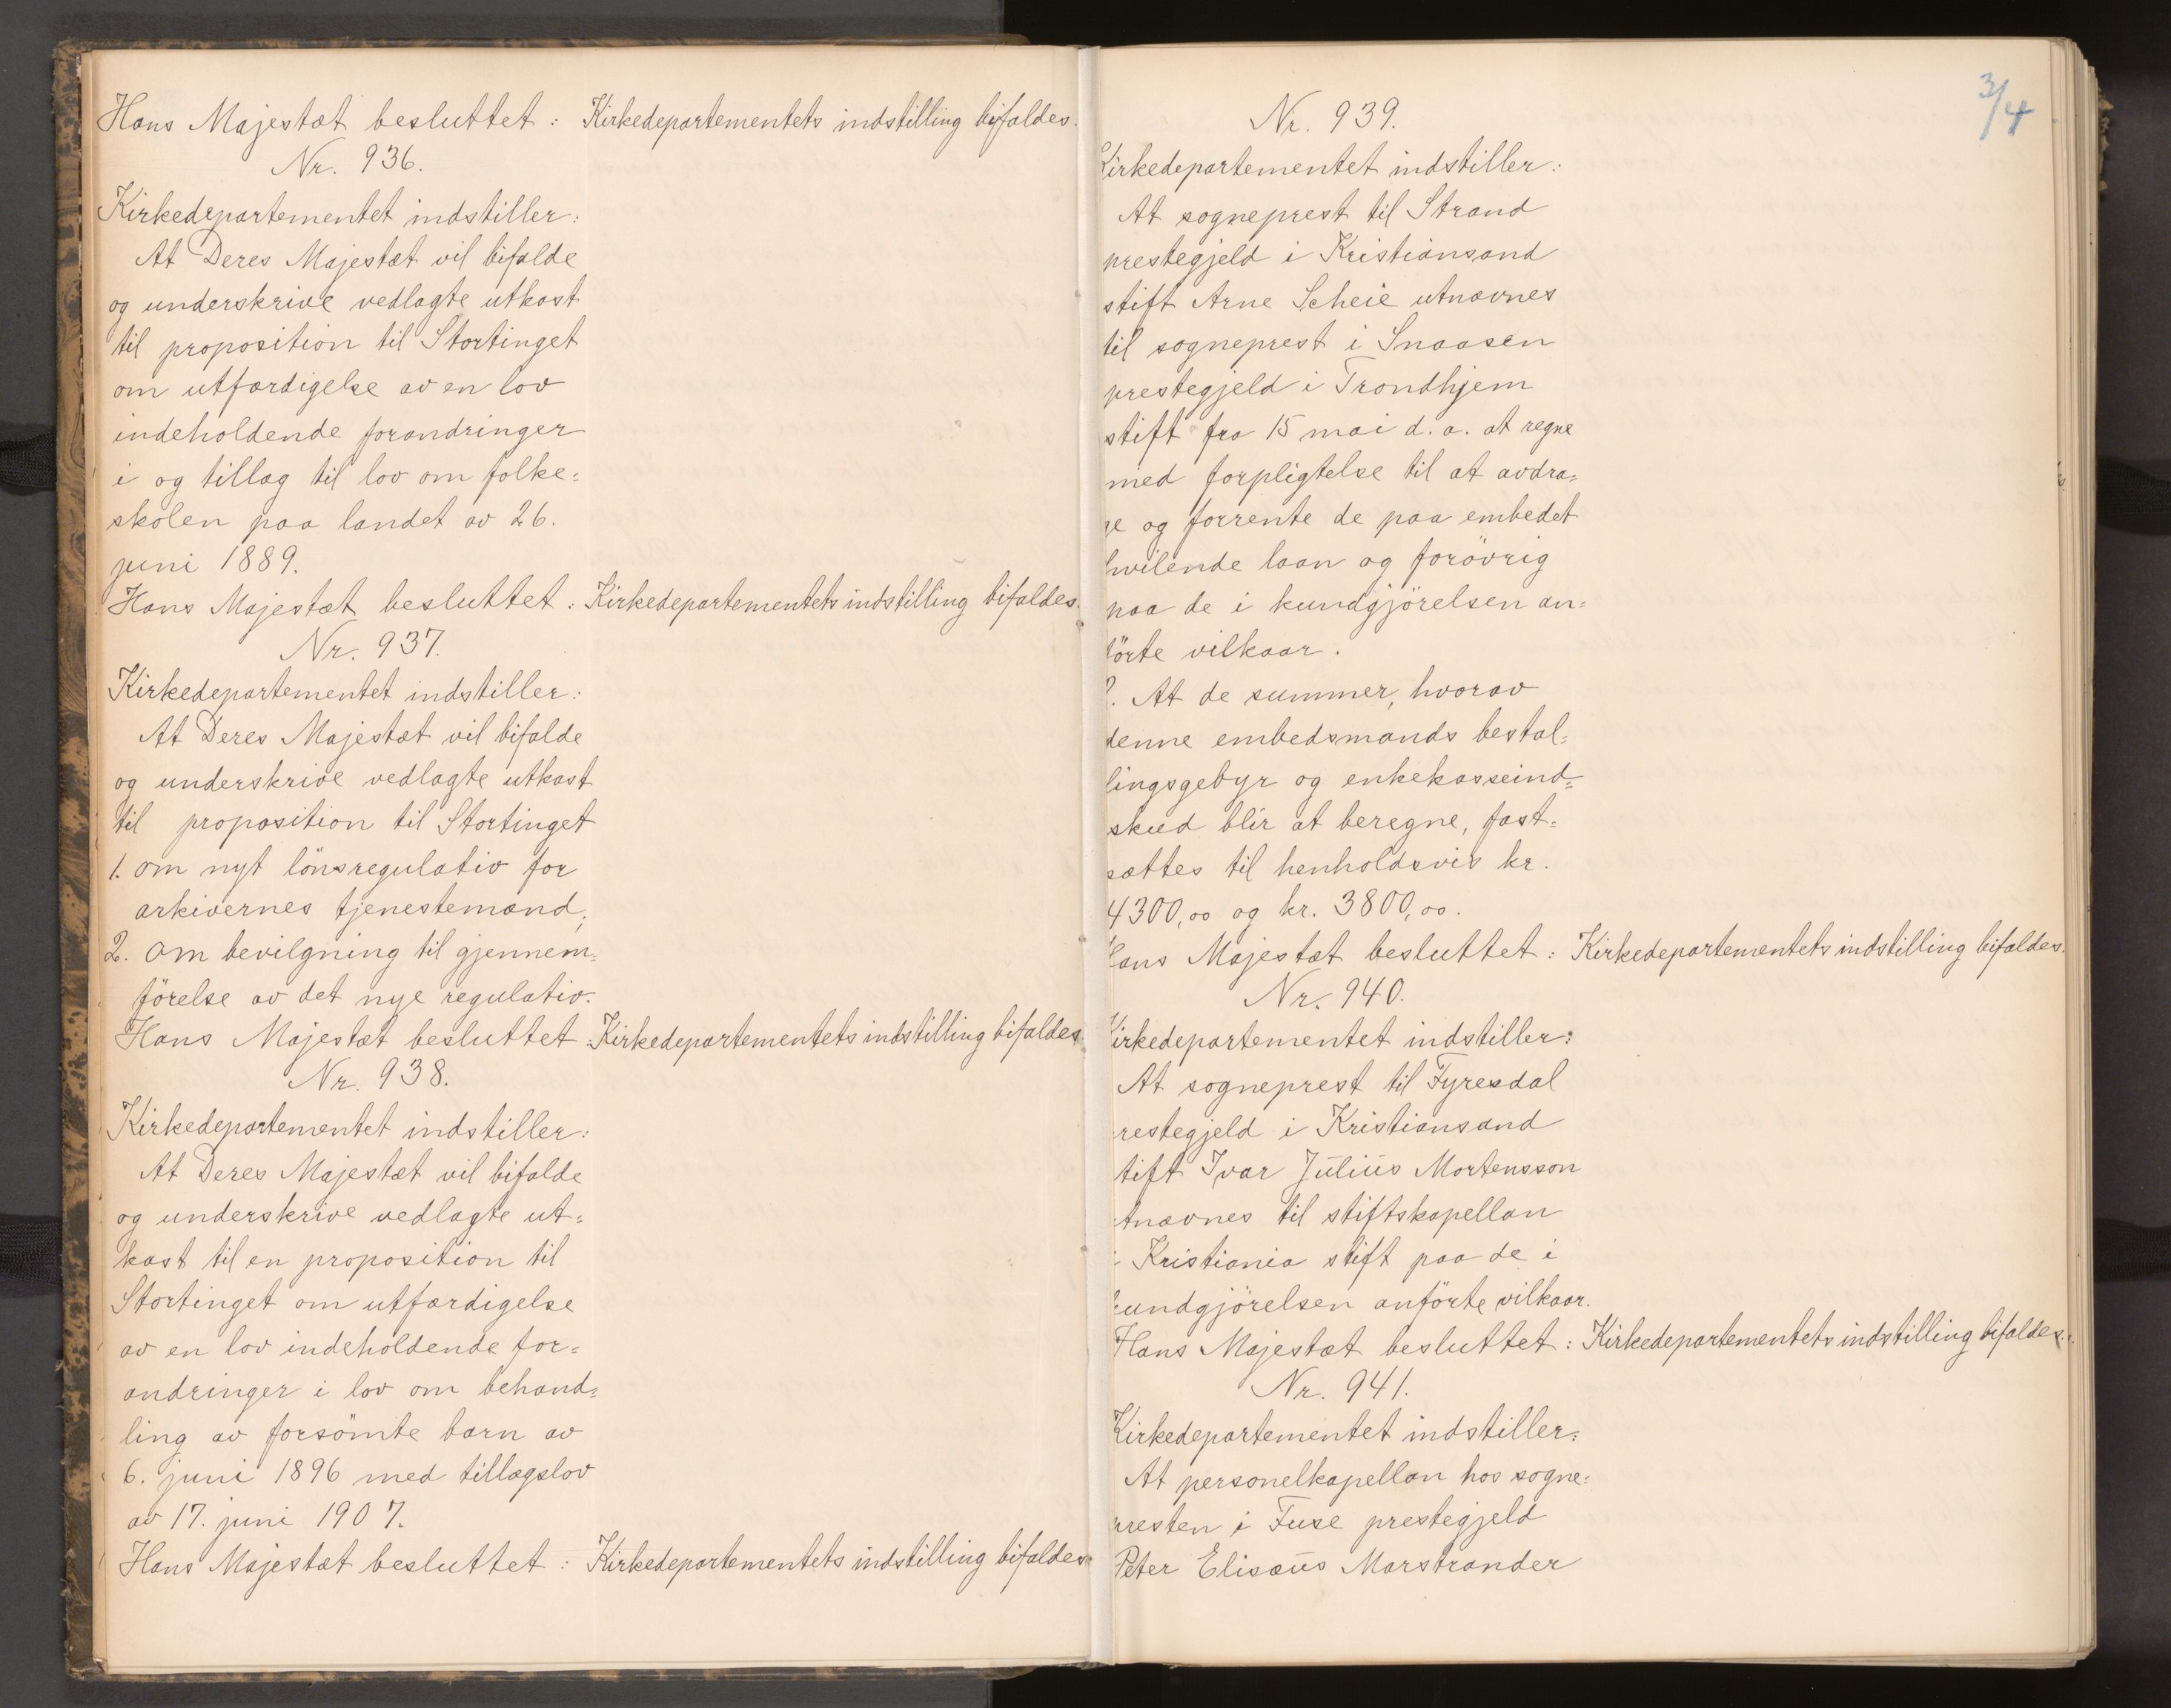 Hans Majestæt besluttet: Kirkedepartementets indstilling bifaldes.
Nr. 936.
Kirkedepartementet indstiller:
At Deres Majestæt vil bifalde
og underskrive vedlagte utkast
til proposition til Stortinget
om utfærdigelse av en lov
indeholdende forandringer
i og tillæg til lov om folke=
skolen paa landet av 26.
juni 1889.
Hans Majestæt besluttet: Kirkedepartementets indstilling bifaldes.
Nr. 937.
Kirkedepartementet indstiller:
At Deres Majestæt vil bifalde
og underskrive vedlagte utkast
til proposition til Stortinget
1. om nyt lönsregulativ for
arkivernes tjenestemænd;
2. om bevilgning til gjennem=
förelse av det nye regulativ.
Hans Majestæt besluttet: Kirkedepartementets indstilling bifaldes.
Nr. 938.
Kirkedepartementet indstiller:
At Deres Majestæt vil bifalde
og underskrive vedlagte ut=
kast til en proposition til
Stortinget om utfærdigelse
av en lov indeholdende for=
andringer i lov om behand=
ling av forsömte barn av
6. juni 1896 med tillægslov
av 17. juni 1907.
Hans Majestæt besluttet: Kirkedepartementets indstilling bifaldes.
3/4
Nr. 939.
Kirkedepartementet indstiller:
At sogneprest til Strand
prestegjeld i Kristiansand
stift Arne Scheie utnævnes
til sogneprest i Snaasen
prestegjeld i Trondhjem
stift fra 15 mai d.a. at regne
med forpligtelse til at avdra=
ge og forrente de paa embedet
hvilende laan og forövrig
paa de i kundgjörelsen an=
förte vilkaar.
2. At de summer, hvorav
denne embedsmands bestal=
lingsgebyr og enkekasseind=
skud blir at beregne, fast=
sættes til henholdsvis kr.
4300,00 og kr. 3800,00.
Hans Majestæt besluttet: Kirkedepartementets indstilling bifaldes.
Nr. 940.
Kirkedepartementet indstiller:
At sogneprest til Fyresdal
restegjeld i Kristiansand
tift Ivar Julius Mortensson
tnævnes til stiftskapellan
i Kristiania stift paa de i
kundgjörelsen anförte vilkaar.
Hans Majestæt besluttet: Kirkedepartementets indstilling bifaldes.
Nr. 941.
Kirkedepartementet indstiller:
At personelkapellan hos sogne=
presten i Fuse prestegjeld
Peter Elisæus Marstrander